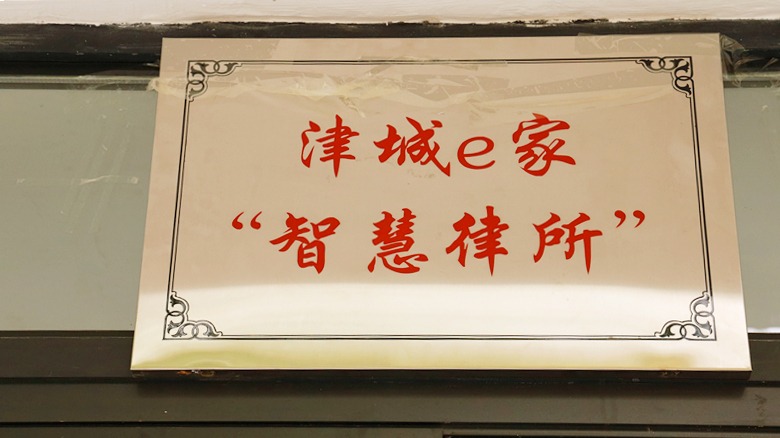 津城e家
“智慧律所”